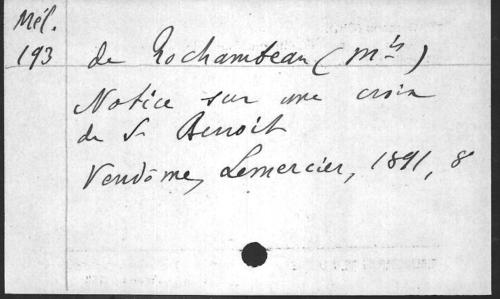 Mél.
193
de Rochambeau (Mis)
Notice sur une croix
de St Benoit
Vendôme, Lemercier, 1891, 8